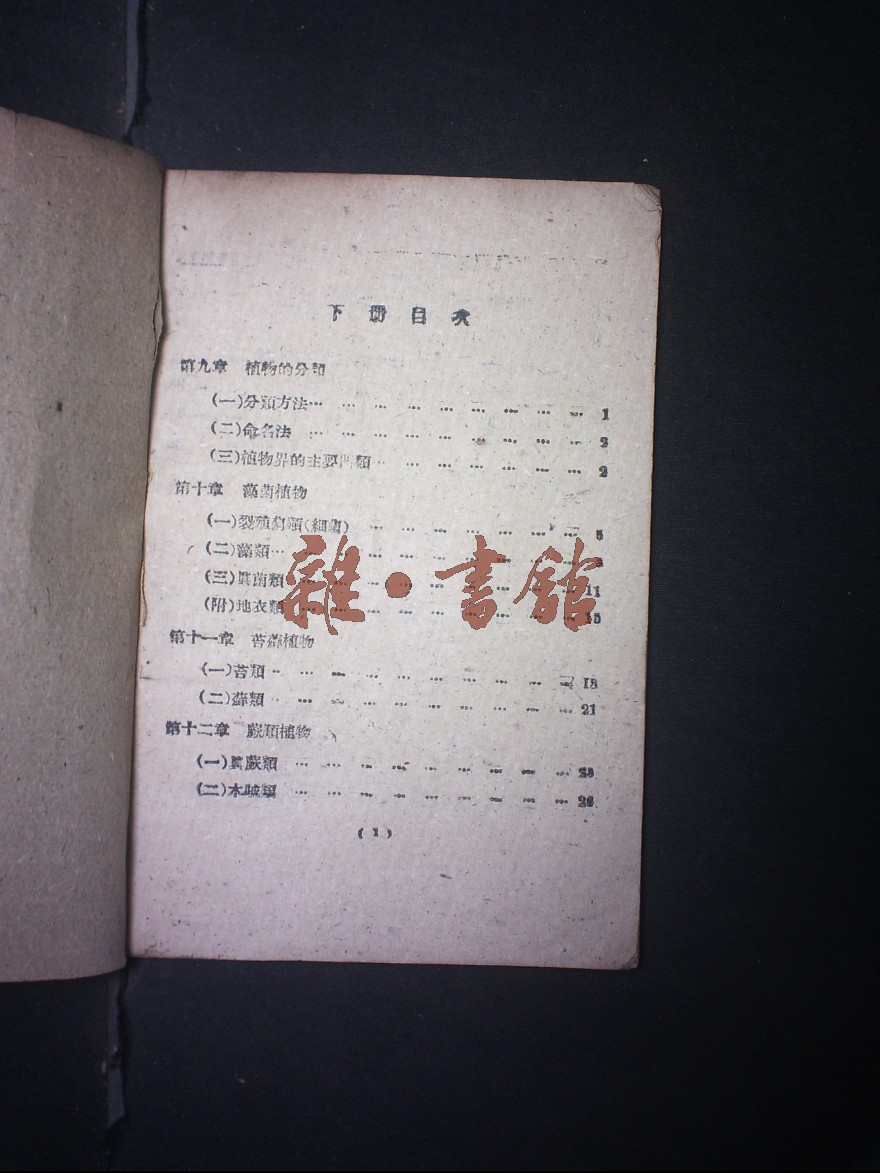 下册目次
第九章 植物的分類
(一)分類方法… … … … … … … … … 1
(二)命名法 … … … … … … … … … 2
(三)植物界的主要門類… … … … … … … 2
第十章 藻菌植物
(一)裂殖菌類(細菌) … … … … … … … 5
(二)藻類… … … … … … … … … …
(三)眞菌類 … … … … … … … … … 11
(附)地衣類 … … … … … … … … … 15
雜·書館
第十一章 苔蘚植物
(一)苔類… … … … … … … … … … 18
(二)蘚類 … … … … … … … … … … 21
第十二章 蕨類植物
(一)眞蕨類 … … … … … … … … …
(二)木賊類 … … … … … … … … … 26
(1)